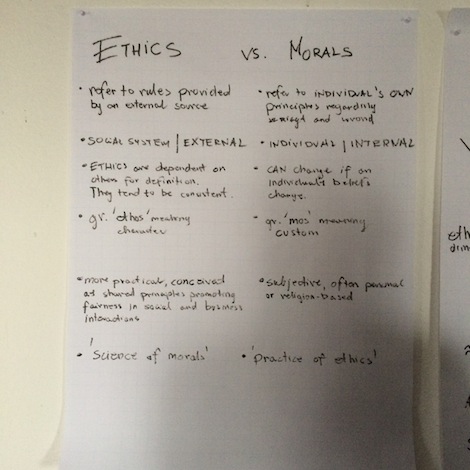 ETHICS vs. MORALS
• refer to rules provided
by an external source
• refer to INDIVIDUAL'S OWN
principles regarding
and
• SOCIAL SYSTEM | EXTERNAL
• INDIVIDUAL | INTERNAL
• ETHICS are dependent on
others for definition.
They tend to be consistent.
• CAN change if an
individual's beliefs
change.
• gr. 'ethos' meaning
character
• gr. 'mos' meaning
custom
• more practical, conceived
as shared principles promoting
fairness in social and business
interactions
• subjective, often personal
or religion-based
• 'Science of morals'
• 'practice of ethics'